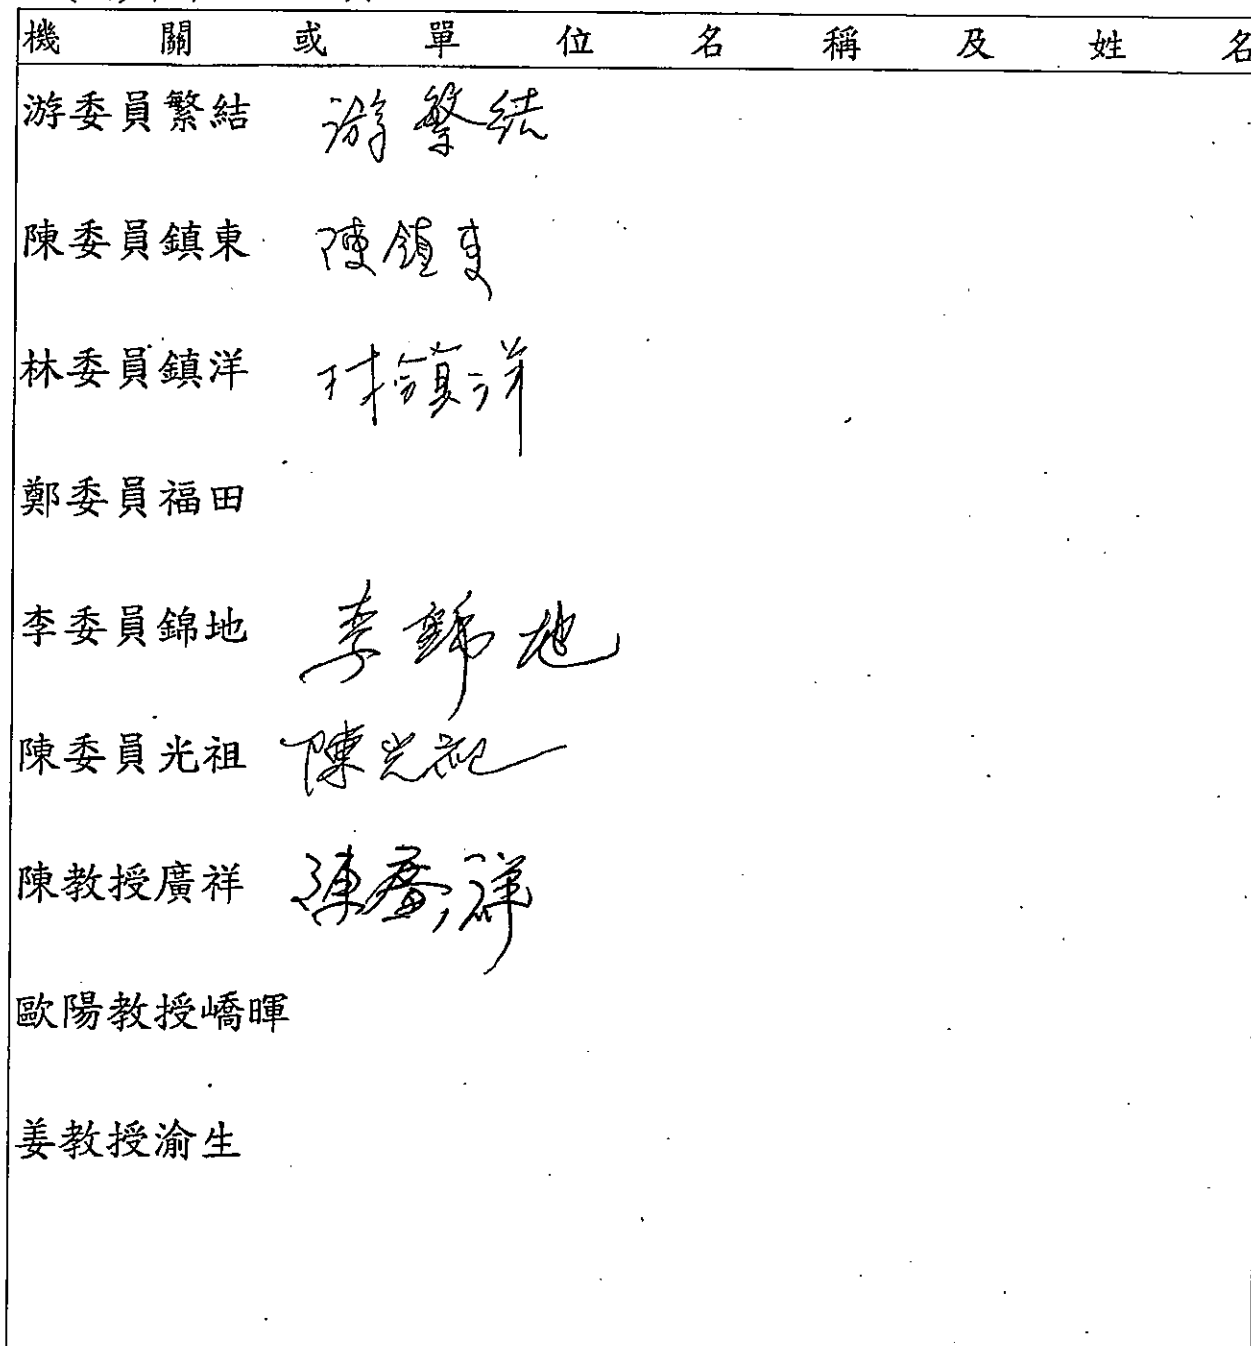 機關或單位名稱及姓名
游委員繁結 游繁結
陳委員鎮東 陳鎮東
林委員鎮洋 林鎮洋
鄭委員福田
李委員錦地 李錦地
陳委員光祖 陳光祖
陳教授廣祥 陳廣祥
歐陽教授嶠暉
姜教授渝生